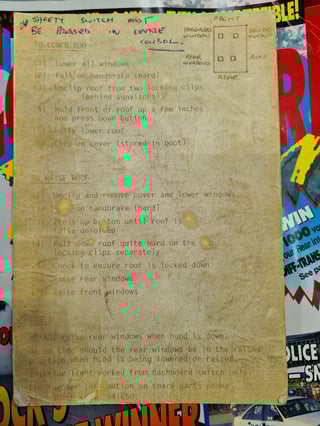 * SAFETY SWITCH MUST
BE PRESSED IN CENTRE
CONSOL.
FRONT
PASSENGERS
WINDOW
DRIVERS
WINDOW
REAR
WINDOWS
ROOF
REAR
TO LOWER ROOF
(1) Lower all windows
(2) Pull on handbrake (hard)
(3) Unclip roof from two locking clips
(behind sunvisors)
(4) Hold front of roof up a few inches
and press Down button
Fully lower roof
Clip on cover (stored in boot)
TO RAISE ROOF
(1) Unclip and remove cover and lower windows
on handbrake (hard)
Press Up button until roof is
fully unfolded
(4) Pull down roof quite hard on the
locking clips separately
Check to ensure roof is locked down
Raise rear windows
Raise front windows
raise rear windows when hood is down.
should the rear windows be in the raised
position when hood is being lowered or raised.
Interior light worked from dashboard switch only.
information on spare parts phone
WIN
1000
your
Rear in
DIFF-TRANS
See pa
POLICE
SN
WINNER